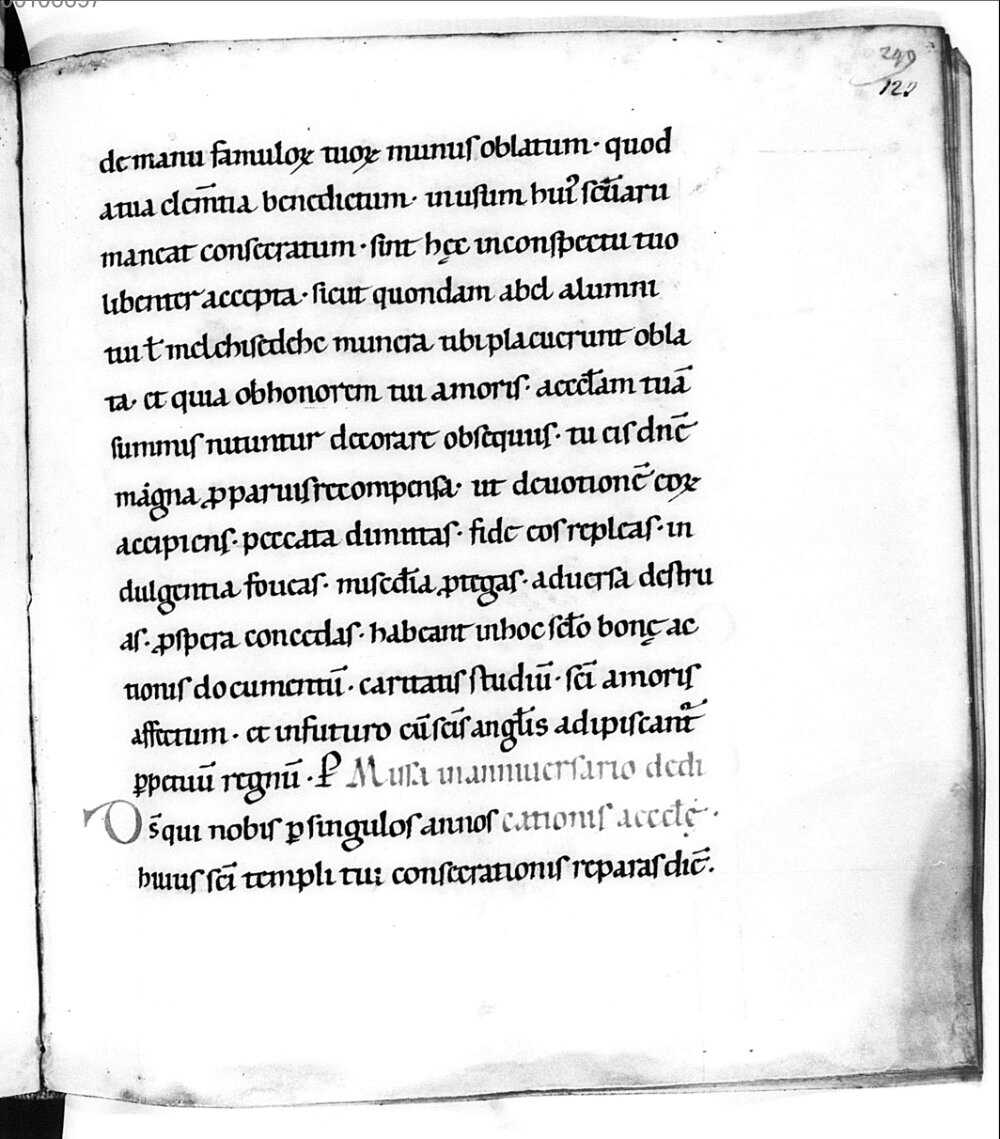 249
de manu famuloꝝ tuoꝝ munus oblatum· quod
atua clem̄tia benedictum· inusum huiꝰ sc̄tuaru
maneat consecratum· sint hęc inconspectu tuo
libenter accepta· sicut quondam abel alumni
tui ł melchisedehc munera tibi placuerunt obla
ta· et quia obhonorem tui amoris· aeccłam tuā
summis nituntur decorare obsequiis· tu eis dn̄e
magna ꝓ paruis recompensa· ut deuotionē eoꝝ
accipiens· peccata dimittas· fide eos repleas· in
dulgentia foueas· misedīa ꝓtegas· aduersa destru
as· ꝓspera concedas· habeant inhoc scło bonę ac
tionis documentū· caritatis studiū· sc̄i amoris
affectum· et infuturo cū sc̄is angłis adipiscant᷑
ꝑpetuū regnū· ꝑ Missa inanniuersario dedi
Ds̄ qui nobis ꝑ singulos annos cationis aeccłę·
huius sc̄i templi tui consecrationis reparas diē·